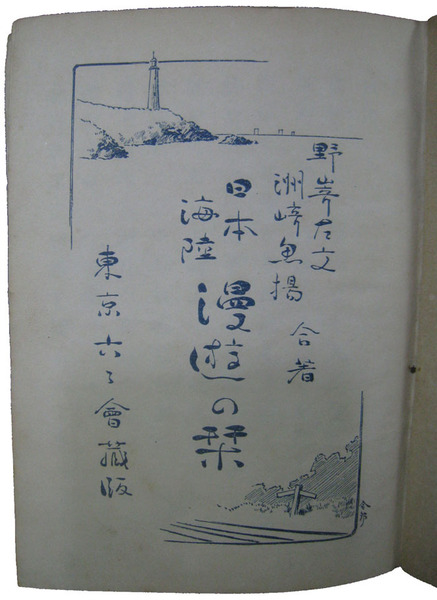 野崎左文
洲崎魚揚 合著
日本
海陸
漫遊の栞
東京六々會藏版